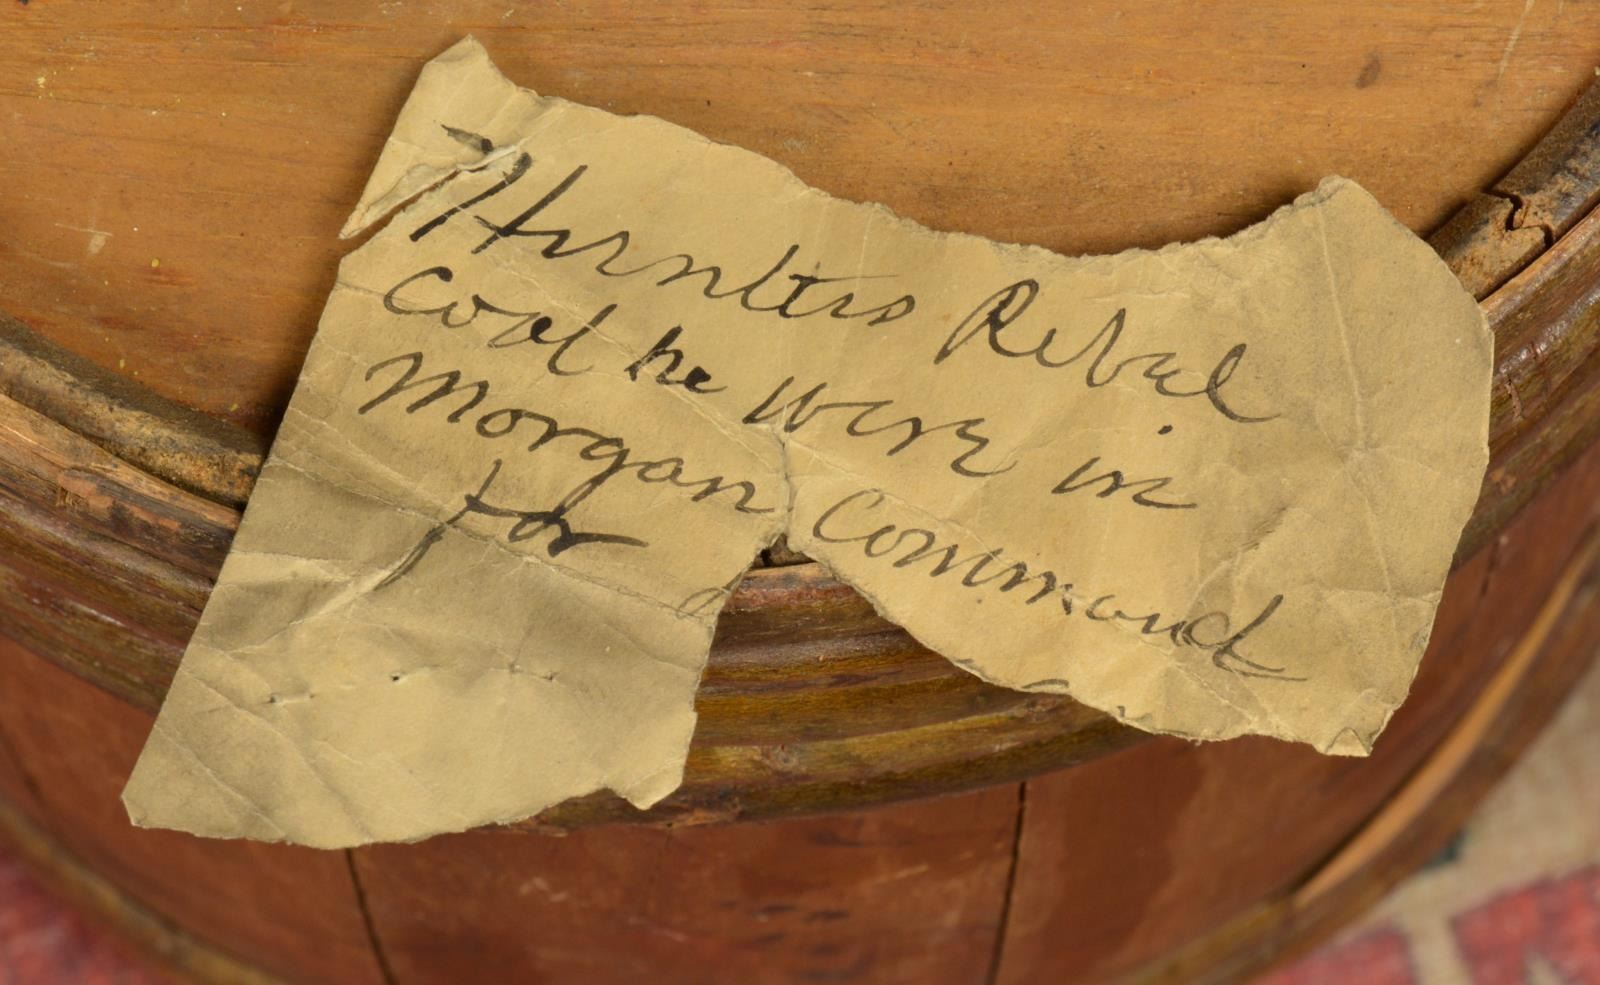 Hunters Rebal
Coat he were in
Morgan Command
for